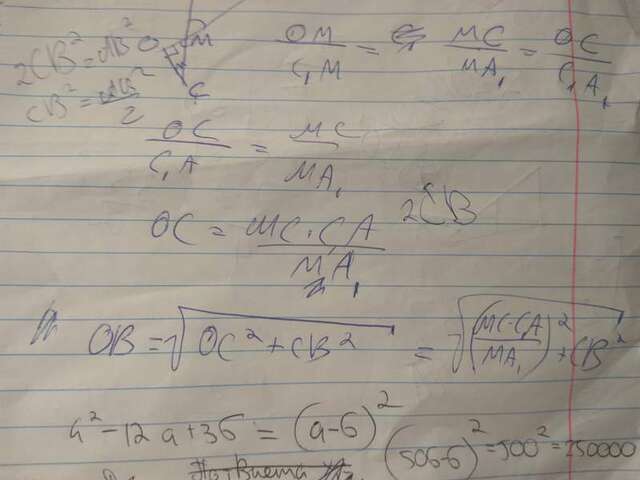 2CB² = AB²
CB² = AB²/2
O M C
OM/C₁M = MC/MA₁ = OC/C₁A₁
OC/C₁A = MC/MA₁
OC = MC·CA/MA₁ 2CB
OB = √(OC² + CB²) = √((MC·CA/MA₁)² + CB²)
a² - 12a + 36 = (a - 6)²
(506-6)² = 500² = 250000